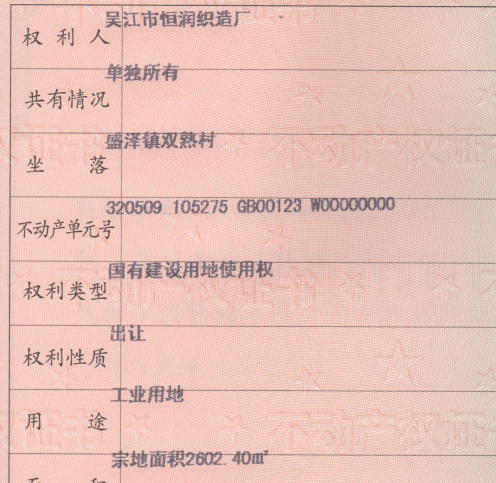 吴江市恒润织造厂
权利人
单独所有
共有情况
盛泽镇双熟村
坐落
320509 105275 GB00123 W00000000
不动产单元号
国有建设用地使用权
权利类型
出让
权利性质
工业用地
用途
宗地面积2602.40㎡